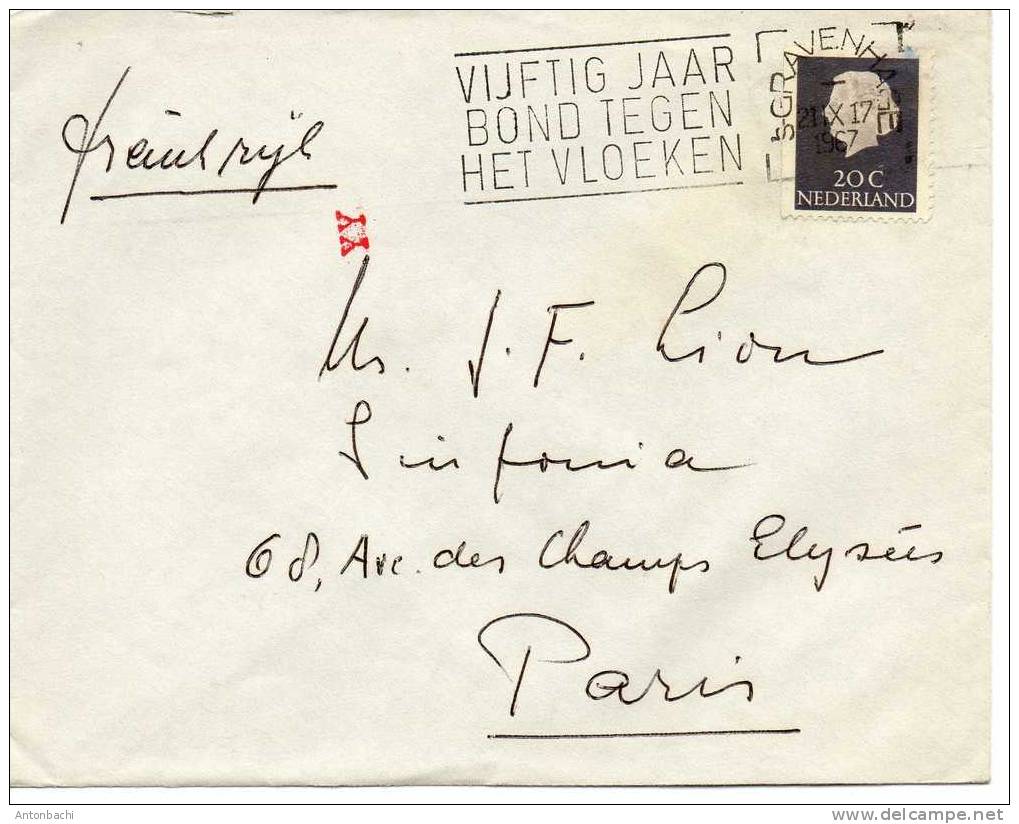 VIJFTIG JAAR
BOND TEGEN
HET VLOEKEN
'S-GRAVENHAGE
21 IX 17
1967
20 C
NEDERLAND
Frankrijk
YY
Ms. J. F. Lion
Sinfonia
68, Ave. des Champs Elysées
Paris
Antonbachi
delcampe.net